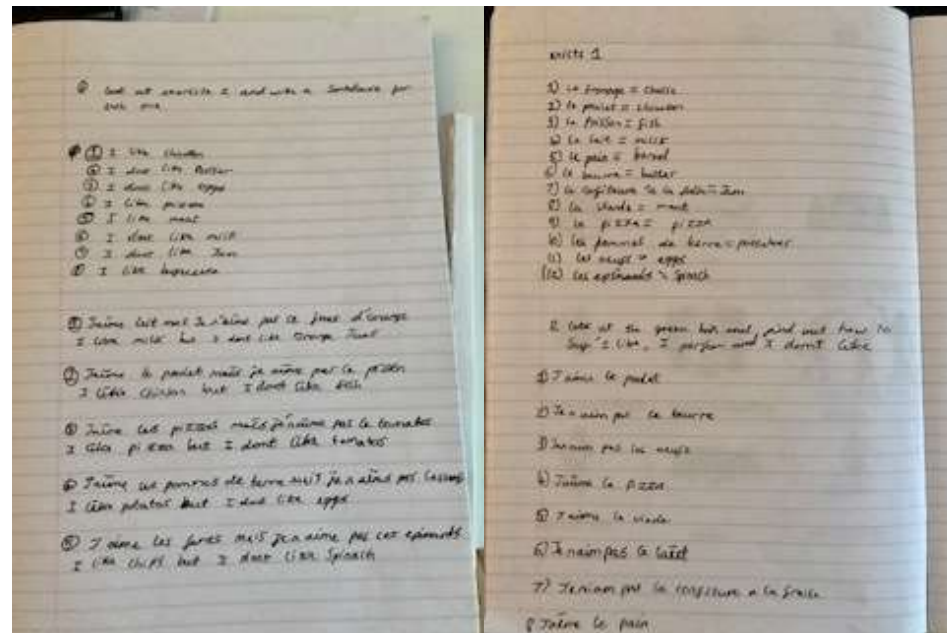 look at exercise 1 and write a sentence for
each one
① I like chicken
② I dont like butter
③ I dont like eggs
④ I like pizza
⑤ I like meat
⑥ I dont like milk
⑦ I dont like Jam
⑧ I like
① J'aime lait mais Je n'aime pas le jus d'orange
I like milk but I dont like orange
② J'aime le poulet mais je aime pas le
I like chicken but I dont like fish
③ J'aime les pizzas mais je n'aime pas le tomatos
I like pizza but I dont like tomatos
④ J'aime les pommes de terre mais je n'aime pas
I like potatos but I dont like eggs
⑤ J'aime les mais je n'aime pas les epinards
I like chips but I dont like Spinach
1
1) Le fromage = cheese
2) le poulet = chicken
3) le Poisson = fish
4) le lait = milk
5) le pain =
6) le beurre = butter
7) la confiture a la = Jam
8) la viande = meat
9) la pizza = pizza
10) les pommes de terre = potatoes
11) les oeufs = eggs
12) les epinards = Spinach
2 look at the green box and find out how to
Say I like, I and I dont like
1) J'aime le
2) pas le beurre
3) pas les oeufs
4) J'aime la pizza
5) J'aime la viande
6) pas le
7) pas la confiture a la fraise
8 J'aime le pain